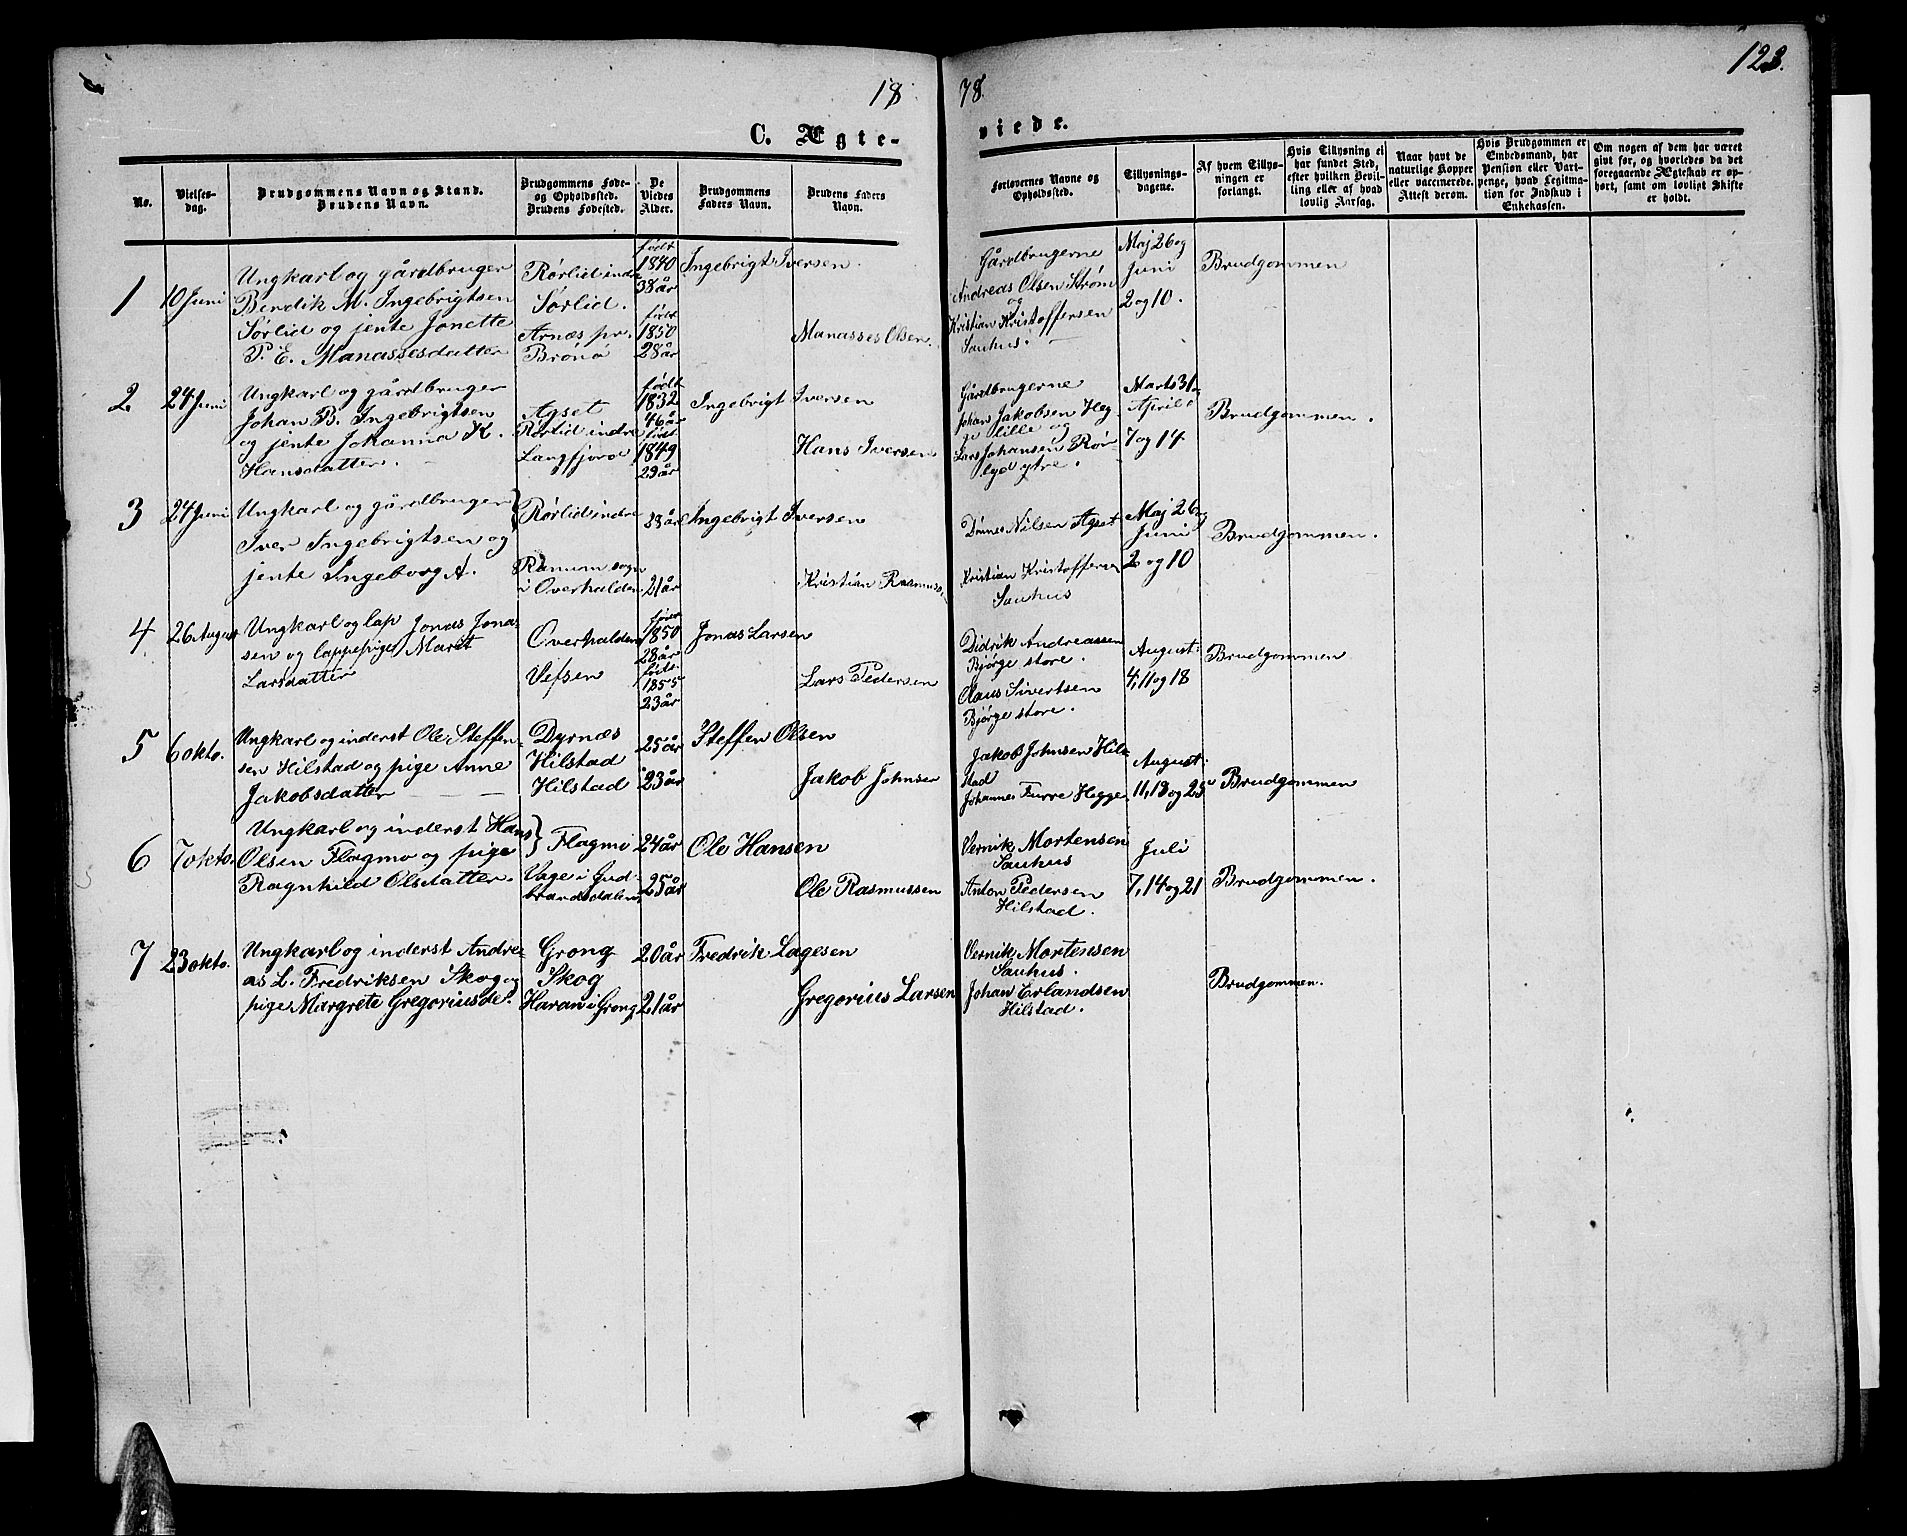 18 78 123.
C. Ægte- viede.
No.
Vielses-
dag.
Brudgommens Navn og Stand.
Brudens Navn.
Brudgommens Føde-
og Opholdssted.
Brudens Fødested.
De
Viedes
Alder.
Brudgommens
Faders Navn.
Brudens Faders
Navn.
Forlovernes Navne og
Opholdssted.
Tillysnings-
dagene.
Af hvem Tillys-
ningen er
forlangt.
Hvis Tillysning ei
har fundet Sted,
efter hvilken Bevil-
ling eller af hvad
lovlig Aarsag.
Naar havt de
naturlige Kopper
eller vaccinerede.
Attest derom.
Hvis Brudgommen er
Embedsmand, har
Pension eller Vart-
penge, hvad Legitima-
tion for Indskud i
Enkekassen.
Om nogen af dem har været
givt før, og hvorledes da det
foregaaende Ægteskab er op-
hørt, samt om lovligt Skifte
er holdt.
1
10 Juni
Ungkarl og gårdbruger
Bendik M. Ingebrigtsen
Sørlid og jente Jonette
P. E. Manassesdatter
Rørlid indre
Sørlid.
Arnæs pr.
Brønø
født
1840
38 år
født
1850
28 år
Ingebrigt Iversen.
Manasses Olsen.
Gårdbrugerne
Andreas Olsen Strøm
og
Kristian Kristoffersen
Sauhus.
Maj 26 og
Juni
2 og 10.
Brudgommen
2.
24 Juni
Ungkarl og gårdbruger
Johan B. Ingebrigtsen
og jente Johanna K.
Hansdatter.
Agset
Rørlid indre
Langfjord
født
1832
46 år
født
1849
29 år
Ingebrigt Iversen
Hans Iversen
Gårdbrugerne
Johan Jakobsen Heg-
ge lille og
Lars Johansen Rør-
lyd ytre.
Marts 31
April
7 og 14
Brudgommen.
3
24 Juni
Ungkarl og gårdbruger
Iver Ingebrigtsen og
jente Ingeborg A.
Rørlid indre
Ranum sogn
i Overhalden
38 år
21 år
Ingebrigt Iversen
Kristian Rasmuss
Nilsen Agset
Kristian Kristoffersen
Sauhus
Maj 26 og
Juni
2 og 10
Brudgommen.
4
26 August
Ungkarl og lap Jonas Jona-
sen og lappepige Maret
Larsdatter
Overhalden
Vefsen
født
1850
28 år
født
1855
23 år
Jonas Larsen
Lars Pedersen
Didrik Andreassen
Bjørge store.
Claus Sivertsen
Bjørge store.
August
4, 11 og 18
Brudgommen
5
6 okto.
Ungkarl og inderst Ole Steffen-
sen Hilstad og pige Anne
Jakobsdatter
Dyrnæs
Hilstad
Hilstad
25 år
23 år
Steffen Olsen
Jakob Johnsen
Jakob Johnsen Hil-
stad
Johannes Furre Hegge
August
11, 18 og 25
Brudgommen
6
7 okto.
Ungkarl og inderst Hans
Olsen Flagmo og pige
Ragnhild Olsdatter.
Flagmo
Vage i Gud-
brandsdalen
24 år
25 år
Ole Hansen
Ole Rasmussen
Vernik Mortensen
Sauhus
Anton Pedersen
Hilstad.
Juli
7, 14 og 21
Brudgommen.
7
23 okto.
Ungkarl og inderst Andre-
as L. Fredriksen Skog og
pige Margrete Gregoriusd.
Grong
Skog
Haran i Grong
20 år
21 år
Fredrik Lagesen
Gregorius Larsen
Vernik Mortensen
Sauhus.
Johan Erlandsen
Hilstad.
Brudgommen.